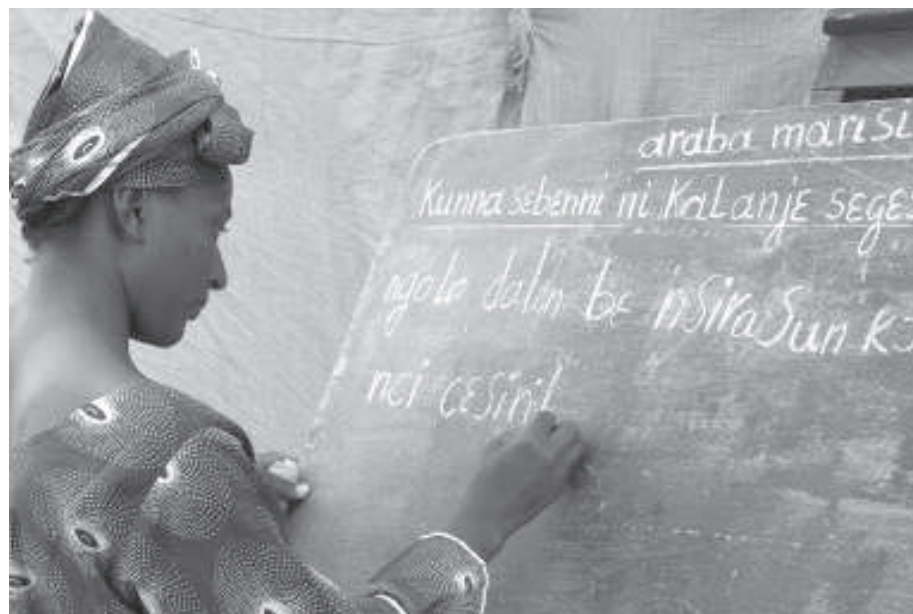 araba marisi
Kunna sebenni ni KaLanjɛ sɛgɛs
ngolo dalen bɛ nsirasun kɔ
nci cɛsiri